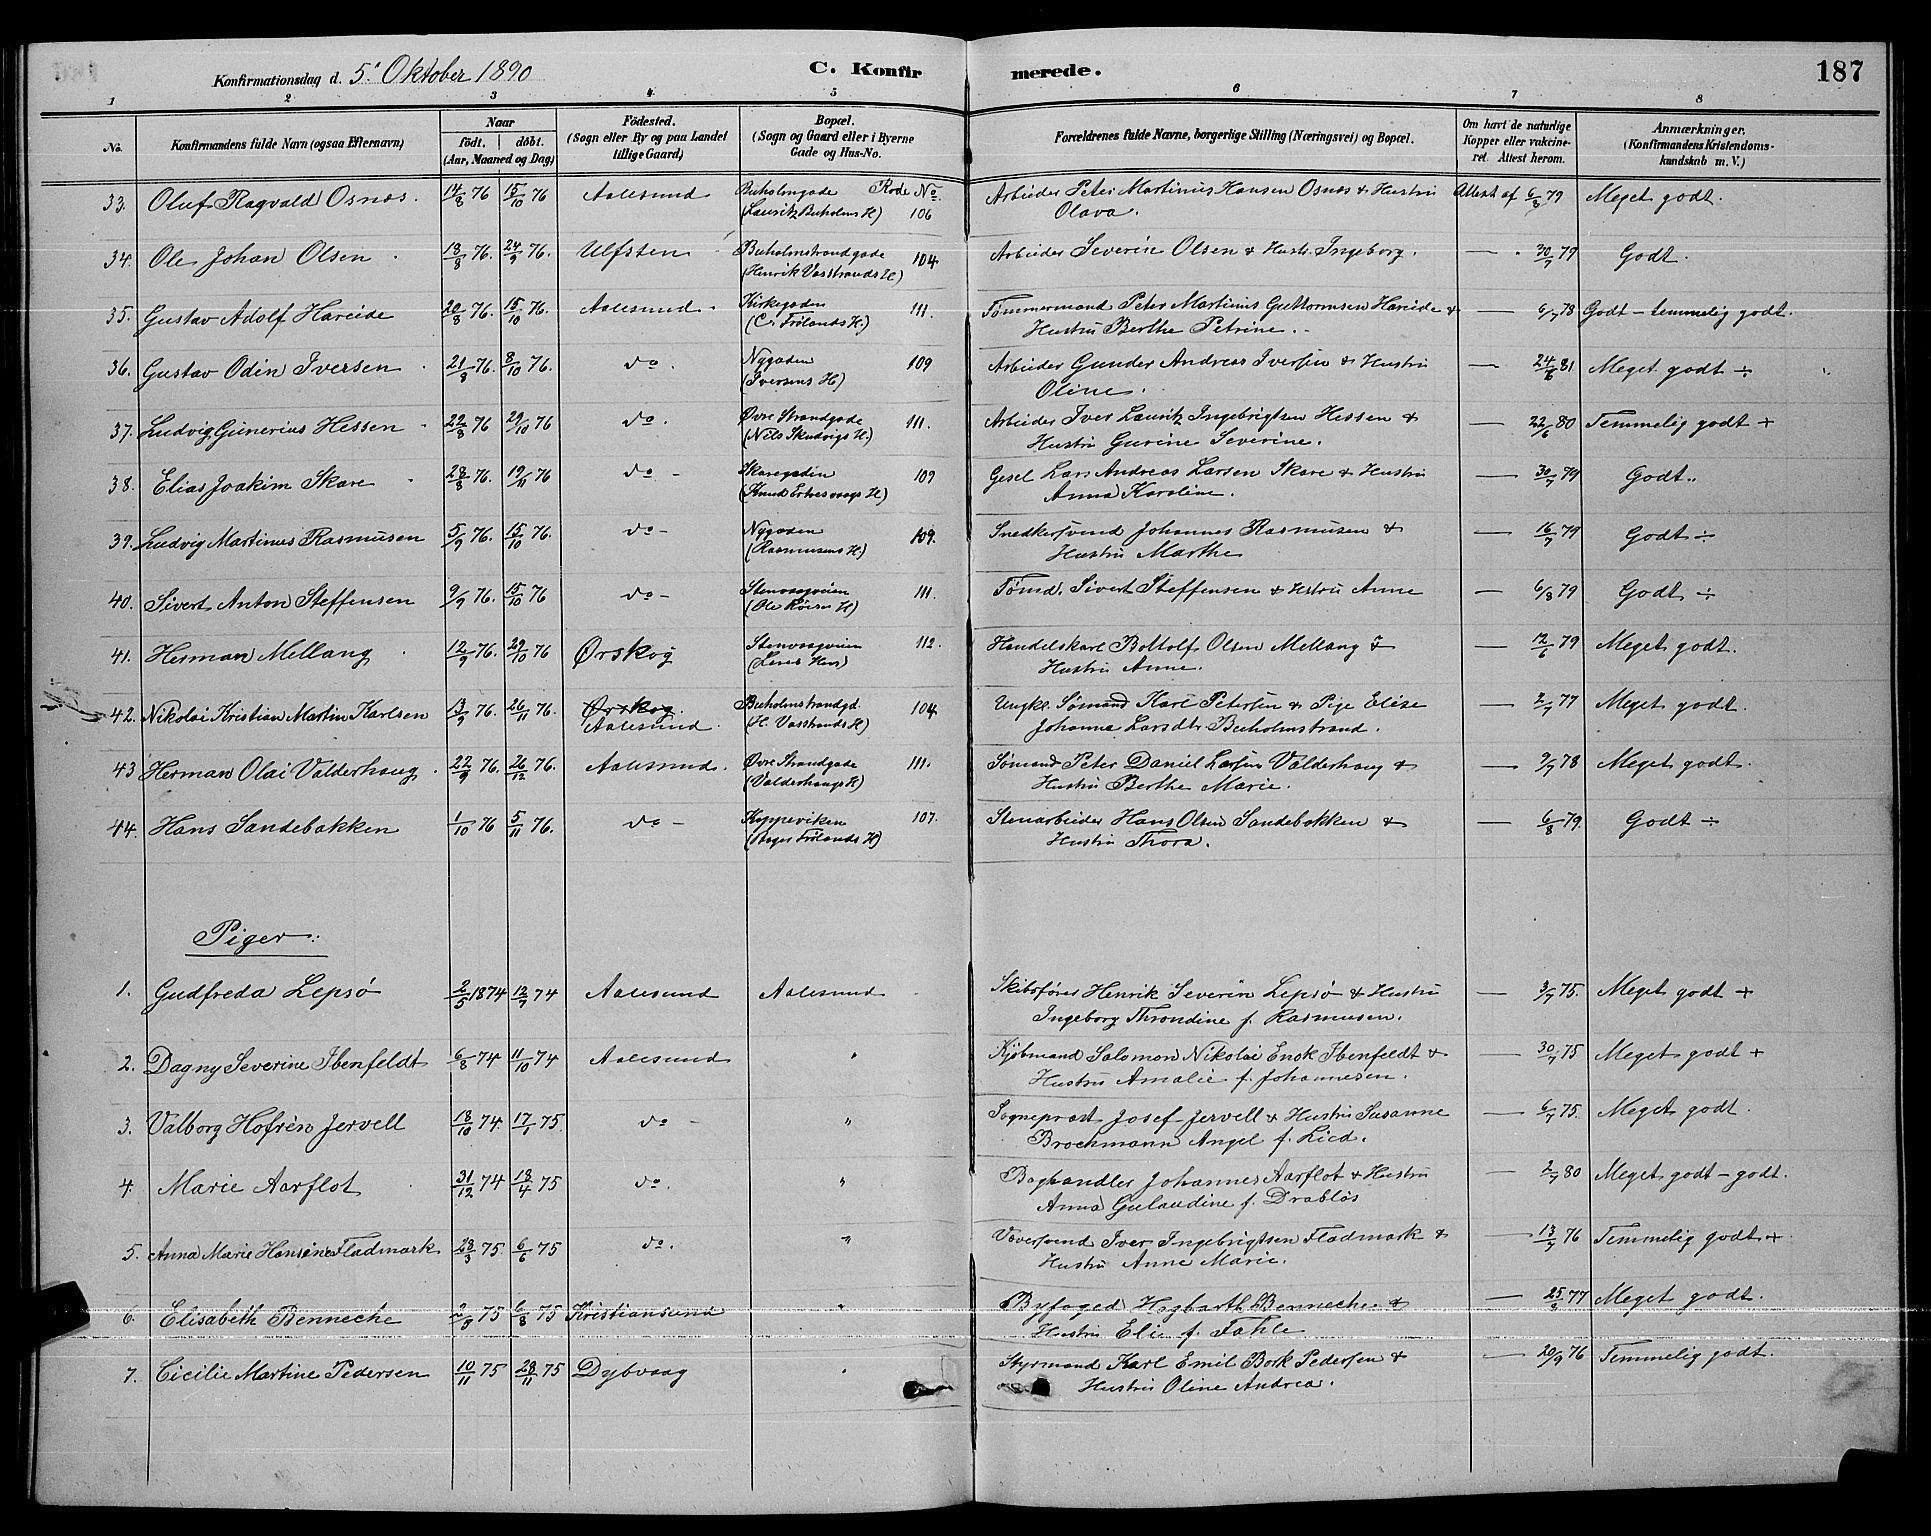 Konfirmationsdag d. 5' Oktober 1890
C. Konfirmerede.
187
1 2 3 4 5 6 7 8
No. Konfirmandens fulde Navn (ogsaa Efternavn) Naar födt. döbt. (Aar, Maaned og Dag) Födested. (Sogn eller By og paa Landet tillige Gaard) Bopæl. (Sogn og Gaard eller i Byerne Gade og Hus-No. Forældrenes fulde Navne, borgerlige Stilling (Næringsvei) og Bopæl. Om havt de naturlige Kopper eller vakcineret. Attest herom. Anmærkninger. (Konfirmandens Kristendomskundskab m. V.)
33. Oluf Ragvald Osnes. 14/8 76 15/10 76 Aalesund Buholmgade Rode No. Arbeider Peter Martinus Hansen Osnes & Hustru Attest af 6/8 79 Meget godt.
(Lauritz Buholms H) 106 Olava.
34. Ole Johan Olsen 18/8 76. 24/9 76. Ulfsten Buholmstrandgade 104 Arbeider Severin Olsen & Hustr. Ingeborg. — " 30/7 79 Godt.
(Henrik Vasstrands H)
35. Gustav Adolf Hareide 20/8 76. 15/10 76. Aalesund Kirkegaden 111. Tømmermand Peter Martinus Guttormsen Hareide & — 6/7 78 Godt – temmelig godt.
(C. Frølands H.) Hustru Berthe Petrine.
36. Gustav Odin Iversen 21/8 76. 8/10 76. do. Nygaden 109 Arbeider Gunder Andreas Iversen & Hustru — 24/6 81 Meget godt ÷
(Iversens H) Oline.
37. Ludvig Gunerius Hessen 22/8 76 29/10 76 do. Øvre Strandgade 111. Arbeider Iver Lauritz Ingebrigtsen Hessen & — 22/6 80 Temmelig godt +
(Nils Skudvigs H.) Hustru Gurine Severine.
38. Elias Joakim Skare 28/8 76. 19/11 76 do – Skaregaden 109 Gesel Lars Andreas Larsen Skare & Hustru — 30/7 79 Godt.
(Knud Ertresvaags H) Anna Karoline.
39. Ludvig Martinus Rasmusen 5/9 76. 15/10 76. do – Nygaden 109. Snedkersvend Johannes Rasmusen & — 16/7 79 Godt ÷
(Rasmusens H) Hustru Marthe
40. Sivert Anton Steffensen 9/9 76. 15/10 76 do – Stenvaagveien 111. Tømd. Sivert Steffensen & Hstru Anne — 6/8 79 Godt ÷
41. Herman Mellang 12/9 76. 29/10 76 Ørskog Stenvaagveien 112. Handelskarl Bottolf Olsen Mellang & — 12/6 79 Meget godt.
Hustru Anne.
42. Nikolai Kristian Martin Karlsen 13/9 76. 26/11 76. Ørskog. Buholmstrandgd. 104. Ungkl. Sømand Karl Petersen & Pige Elise — 2/7 77 Meget godt.
Aalesund. (H. Vasstrands H) Johanna Larsdtr. Buholmstrand.
43 Herman Olai Valderhaug. 22/9 76. 26/12 76. Aalesund. Øvre Strandgade 111. Sømand Peter Daniel Larsen Valderhaug & — 9/7 78 Meget godt.
(Valderhaugs H) Hustru Berthe Marie.
44. Hans Sandebakken 1/10 76 5/11 76. do – Kipperviken 107. Stenarbeider Hans Olsen Sandebakken & — 6/8 79. Godt ÷
Hustru Thora.
Piger:
1. Gudfreda Lepsö 2/5 1874 12/7 74 Aalesund Aalesund Skibsfører Henrik Severin Lepsø & Hustru — 3/7 75. Meget godt +
Ingeborg Throndine f. Rasmusen.
2. Dagny Severine Ibenfeldt 6/8 74 11/10 74 Aalesund " Kjøbmand Salomon Nikolai Enok Ibenfeldt & — 30/7 75 Meget godt +
Hustru Amalie f. Johannesen.
3. Valborg Hofren Jervell 18/10 74. 17/1 75. do – " Sogneprost Josef Jervell & Hustru Susanne — 6/7 75. Meget godt.
Brochmann Angel f. Lied.
4. Marie Aarflot 31/12 74 18/4 75 do. " Boghandler Johannes Aarflot & Hustru — 2/7 80 Meget godt – godt.
Anna Gulaudine f. Drabløs
5. Anna Marie Hansine Fladmark 28/3 75 6/6 75 do. " Væversvend Iver Ingebrigtsen Fladmark & — 13/7 76 Temmelig godt +
Hustru Anne Marie.
6. Elisabeth Benneche 75 6/8 75 Kristiansund " Byfoged Hagbarth Benneche & — 25/8 77 Meget godt.
Hustru Elie f. Fahle
7. Cicilie Martine Pedersen 10/11 75 28/11 75 Dybvaag " Styrmand Karl Emil Bork Pedersen & — 20/9 76 Temmelig godt.
Hustru Oline Andrea.